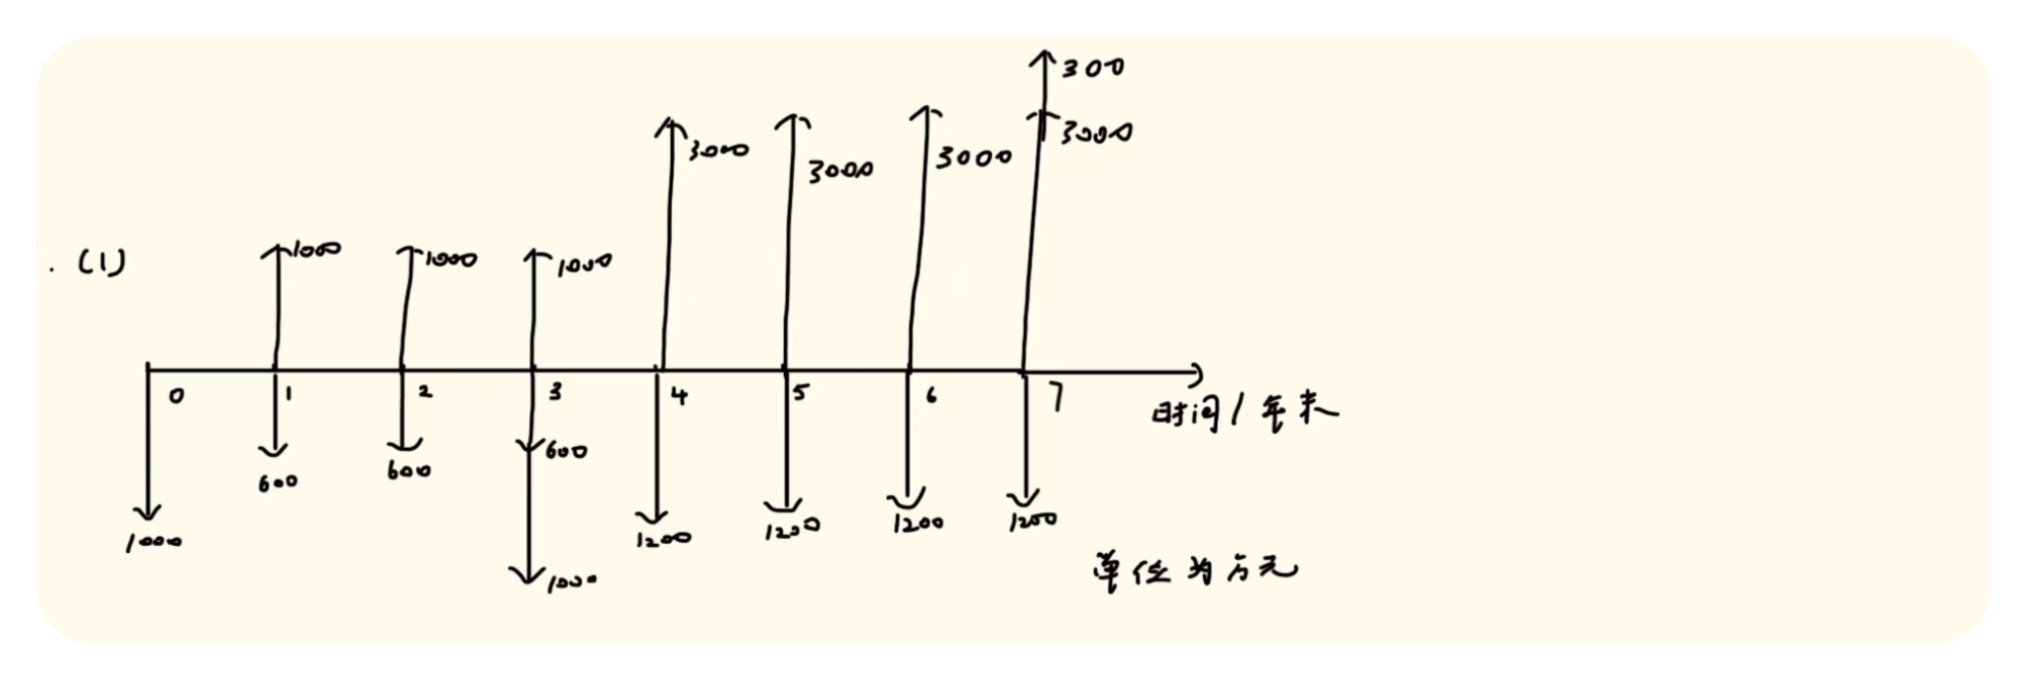 300
3000
3000
3000
3000
(1)
1000
1000
1000
0 1 2 3 4 5 6 7
时间/年末
600
600
600
1000
1200
1200
1200
1200
1000
单位为万元